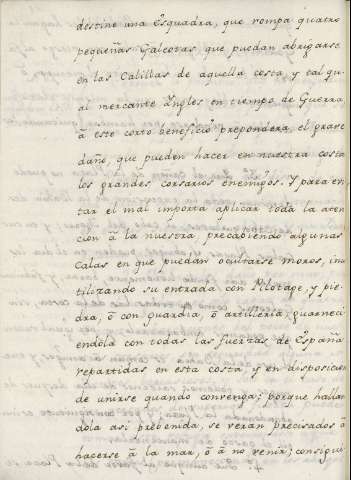 destine una Esquadra, que rompa quatro
pequeñas Galeotas, que puedan abrigarse
en las Calillas de aquella costa, y tal qu-
al mercante Ingles en tiempo de Guerra,
â este corto beneficio prepondera, el grave
daño, que pueden hacer en nuestra costa
los grandes corsarios enemigos. Y para evi-
tar el mal importa aplicar toda la aten-
cion â la nuestra, precabiendo algunas
Calas en que puedan ocultarse moros, inu-
tilizando su entrada con Pilotage, y pie-
dra, ô con guardia, ô artilleria; guarneci-
endola con todas las fuerzas de España
repartidas en esta costa y en disposicion
de unirse quando convenga; porque hallan-
dola asi prebenida, se veran precisados â
hacerse â la mar, ô â no venir; consigui-